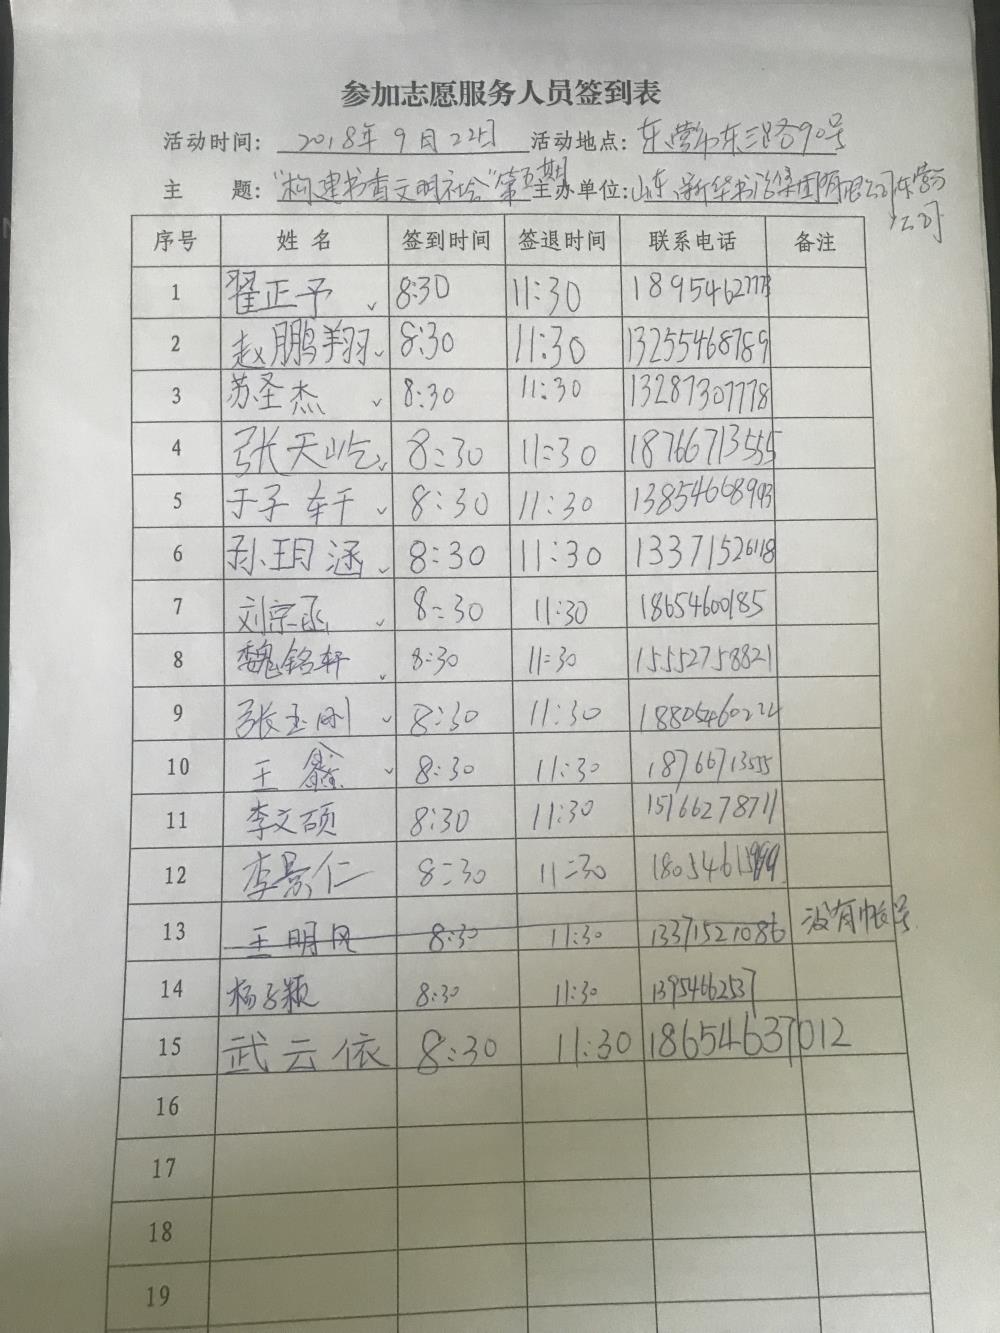 参加志愿服务人员签到表
活动时间: 2018年9月22日 活动地点: 东营市东三路90号
主 题: "构建书香文明社会"第五期 主办单位: 山东新华书店集团有限公司东营分公司
序号 姓名 签到时间 签退时间 联系电话 备注
1 翟正予 ✓ 8:30 11:30 18954627778
2 赵鹏翔 ✓ 8:30 11:30 13255468789
3 苏圣杰 ✓ 8:30 11:30 13287307778
4 张天屹 ✓ 8:30 11:30 18766713555
5 于子轩 ✓ 8:30 11:30 13854668993
6 孙玥涵 ✓ 8:30 11:30 13371526118
7 刘宗函 ✓ 8:30 11:30 18654600185
8 魏铭轩 ✓ 8:30 11:30 15552758821
9 张玉刚 ✓ 8:30 11:30 18805460222
10 王鑫 ✓ 8:30 11:30 18766713555
11 李文硕 8:30 11:30 15166278711
12 李景仁 8:30 11:30
13 王明风 8:30 11:30 13371521086 没有帐号
14 杨子颖 8:30 11:30 13954662537
15 武云依 8:30 11:30 18654637012
16
17
18
19